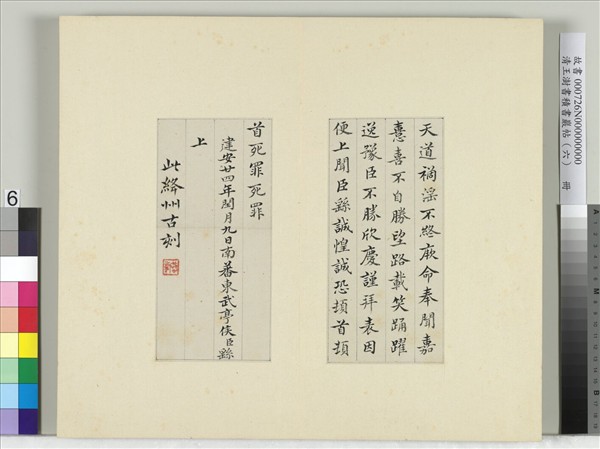 天道禍淫不終厥命奉聞嘉
憙喜不自勝望路載笑踊躍
逆豫臣不勝欣慶謹拜表因
便上聞臣繇誠惶誠恐頓首頓
首死罪死罪
建安廿四年閏月九日南蕃東武亭侯臣繇
上
此絳州古刻
故書000726N000000000
清王澍書積書巖帖（六） 冊
6
A
B